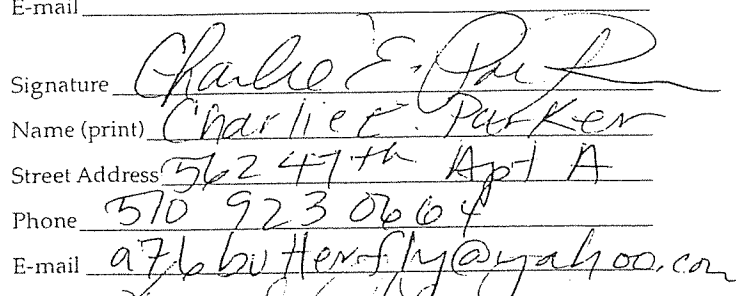 E-mail
Signature Charlie E. Parker
Name (print) Charlie E. Parker
Street Address 562 47th Apt A
Phone 510 923 0664
E-mail a76butterfly@yahoo.com